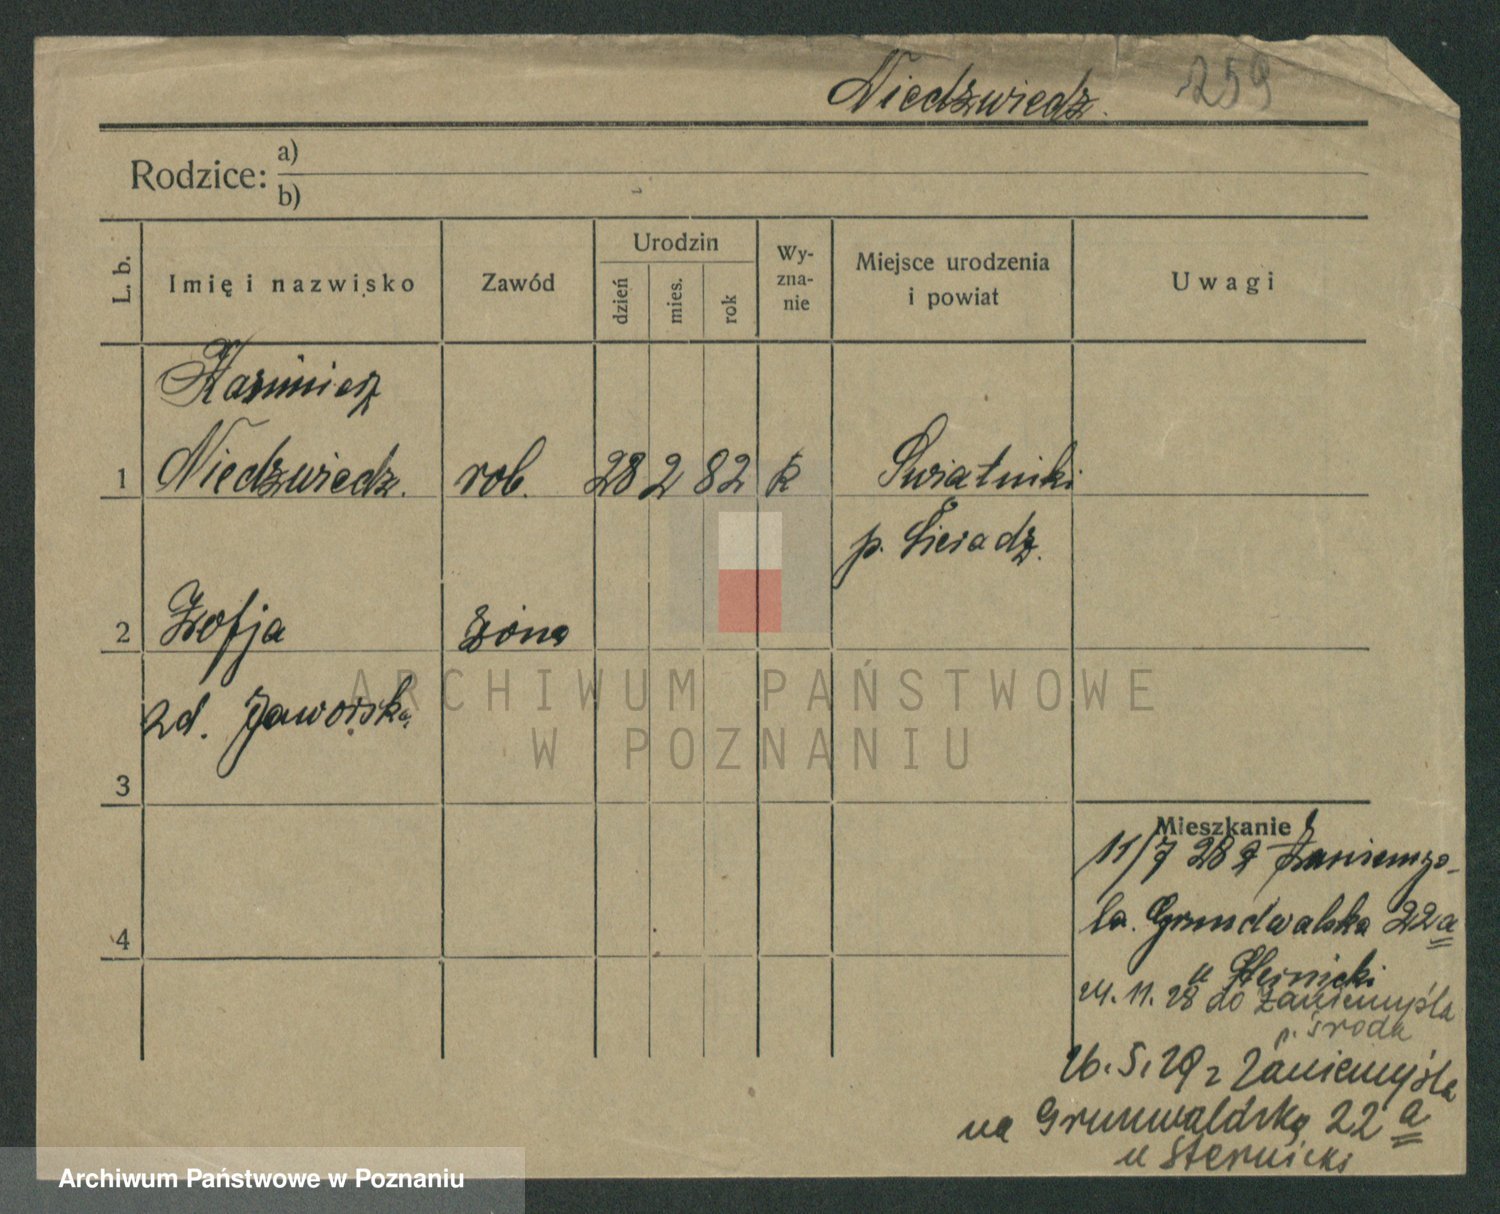 Niedzwiedz. 259
Rodzice: a)
b)
L. b.
Imię i nazwisko
Zawód
Urodzin
dzień
mies.
rok
Wy-
zna-
nie
Miejsce urodzenia
i powiat
Uwagi
Kazimierz
1 Niedzwiedz. rob. 28 2 82 k Swiatniki
p. Sieradz.
2 Zofja żona
zd. Jaworska
3
4
Mieszkanie
11/7 28 z Zaniemyś-
la. Grundwalska 22a
u Sternicki
24.11.28 do Zaniemyśla
p. Środa
26.5.29 z Zaniemyśla
na Grunwaldską 22a
u Sternicki
ARCHIWUM PAŃSTWOWE
W POZNANIU
Archiwum Państwowe w Poznaniu